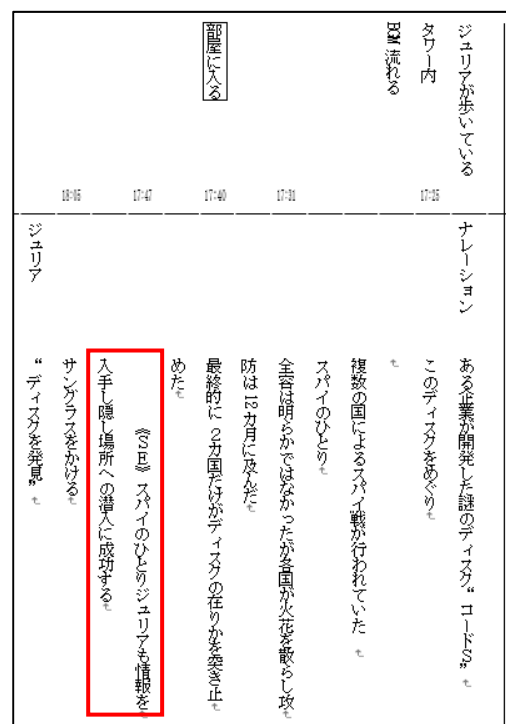 ジュリアが歩いている
タワー内
BGM 流れる
部屋に入る
17:25
17:31
17:40
17:47
18:05
ナレーション
ある企業が開発した謎のディスク“コードS”
このディスクをめぐり
複数の国によるスパイ戦が行われていた
スパイのひとり
全容は明らかではなかったが各国が火花を散らし攻
防は12カ月に及んだ
最終的に２カ国だけがディスクの在りかを突き止
めた
《SE》スパイのひとりジュリアも情報を
入手し隠し場所への潜入に成功する
サングラスをかける
ジュリア
“ディスクを発見”